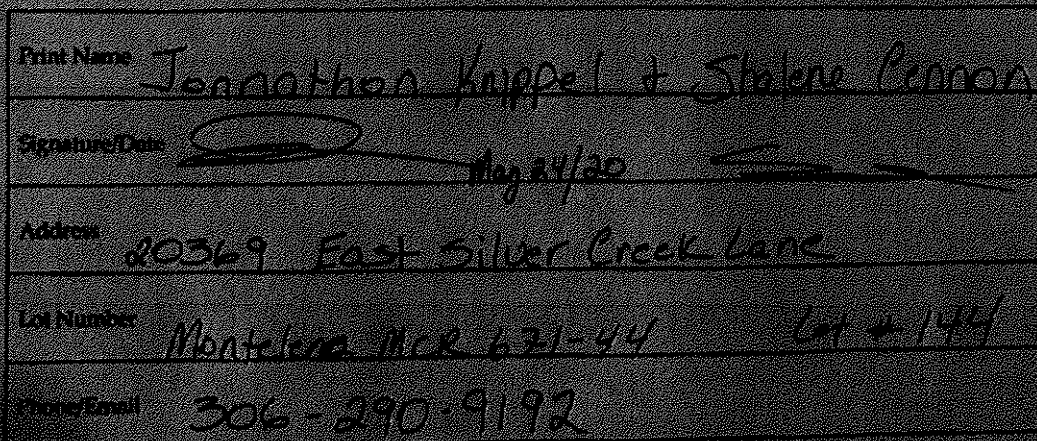 Print Name Jonnathon Knippel + Shalene Cennon
Signature/Date May 24/20
Address 20369 East Silver Creek Lane
Lot Number Montelena MCR 671-44 Lot # 144
Phone/Email 306-290-9192